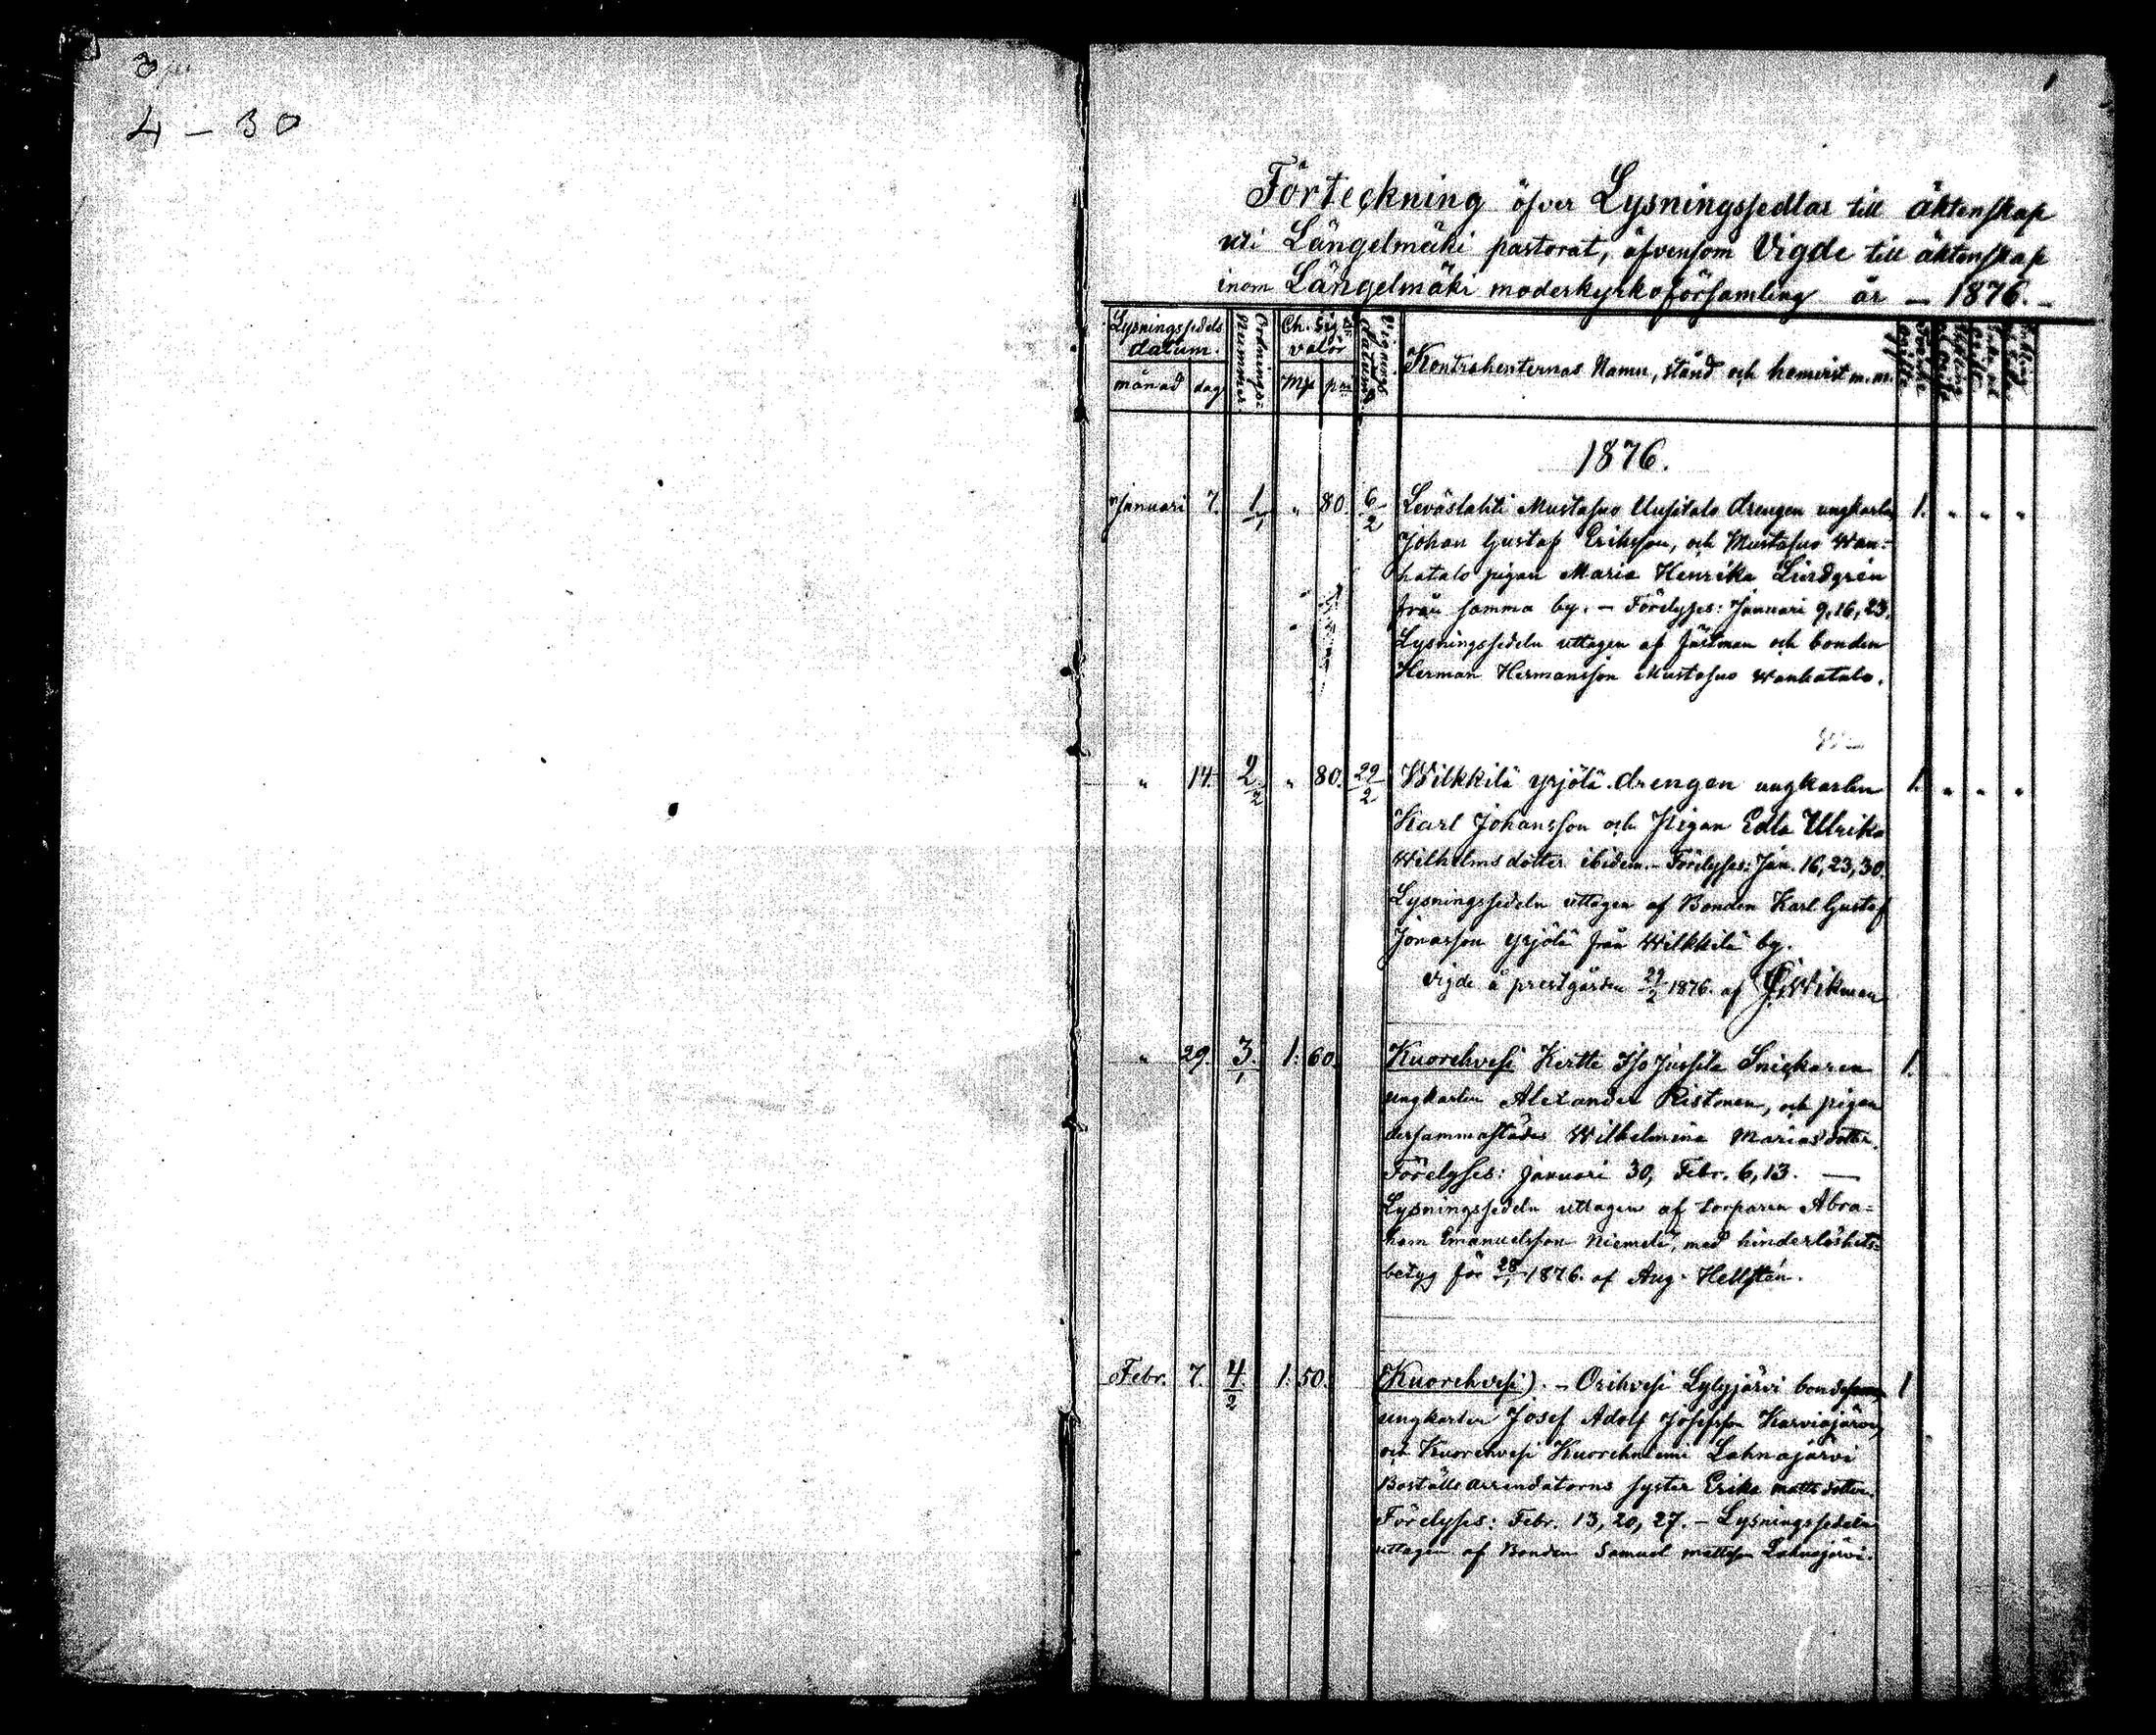 4 - 30
1
Förteckning öfver Lysningssedlar till äktenskap
uti Längelmäki pastorat, äfvensom Vigde till äktenskap
inom Längelmäki moderkyrkoförsamling år - 1876. -
Lysningssedels datum. månad dag
Ordnings Nummer.
Ch. Sig. valör Mk pni
Vignings datum.
Kontrahenternas Namn, stånd och hemvist m. m.
1876.
Januari 7. 1/1 " 80. 6/2 Leväslahti Mustasuo Uusitalo drengen ungkarlen 1. " " "
Johan Gustaf Eriksson, och Mustasuo Wan=
hatalo pigan Maria Henrika Lindgrén
från samma by. - Förelyses: Januari 9, 16, 23.
Lysningssedeln uttagen af fästman och bonden
Herman Hermansson Mustasuo Wanhatalo.
" 14. 2/2 " 80. 29/2 Wilkkilä Yrjölä drengen ungkarlen 1. " " "
Karl Johansson och pigan Edla Ulrika
Wilhelmsdotter ibidem. - Förelyses: Jan. 16, 23, 30.
Lysningssedeln uttagen af Bonden Karl Gustaf
Jonasson Yrjölä från Wilkkilä by.
Vigde å prestgården 29/2 1876. af Wikman
" 29. 3/1 1: 60. Kuorehvesi Kertte Iso Jussila Snickaren 1.
ungkarlen Alexander Ristonen, och pigan
dersammastädes Wilhelmina Mariasdotter.
Förelyses: Januari 30, Febr. 6, 13. —
Lysningssedeln uttagen af torparen Abra=
ham Emanuelsson Niemelä, med hinderlöshets=
betyg för 28/1 1876. af Aug. Hellstén.
Febr. 7. 4/2 1: 50. (Kuorehvesi). - Orihvesi Lylyjärvi bondesonen 1
ungkarlen Josef Adolf Josefsson Karviajärvi,
och Kuorehvesi Kuorehniemi Lahnajärvi
Boställs arrendatorns syster Erika Mattsdotter.
Förelyses: Febr. 13, 20, 27. - Lysningssedeln
uttagen af Bonden Samuel Mattsson Lahnajärvi.